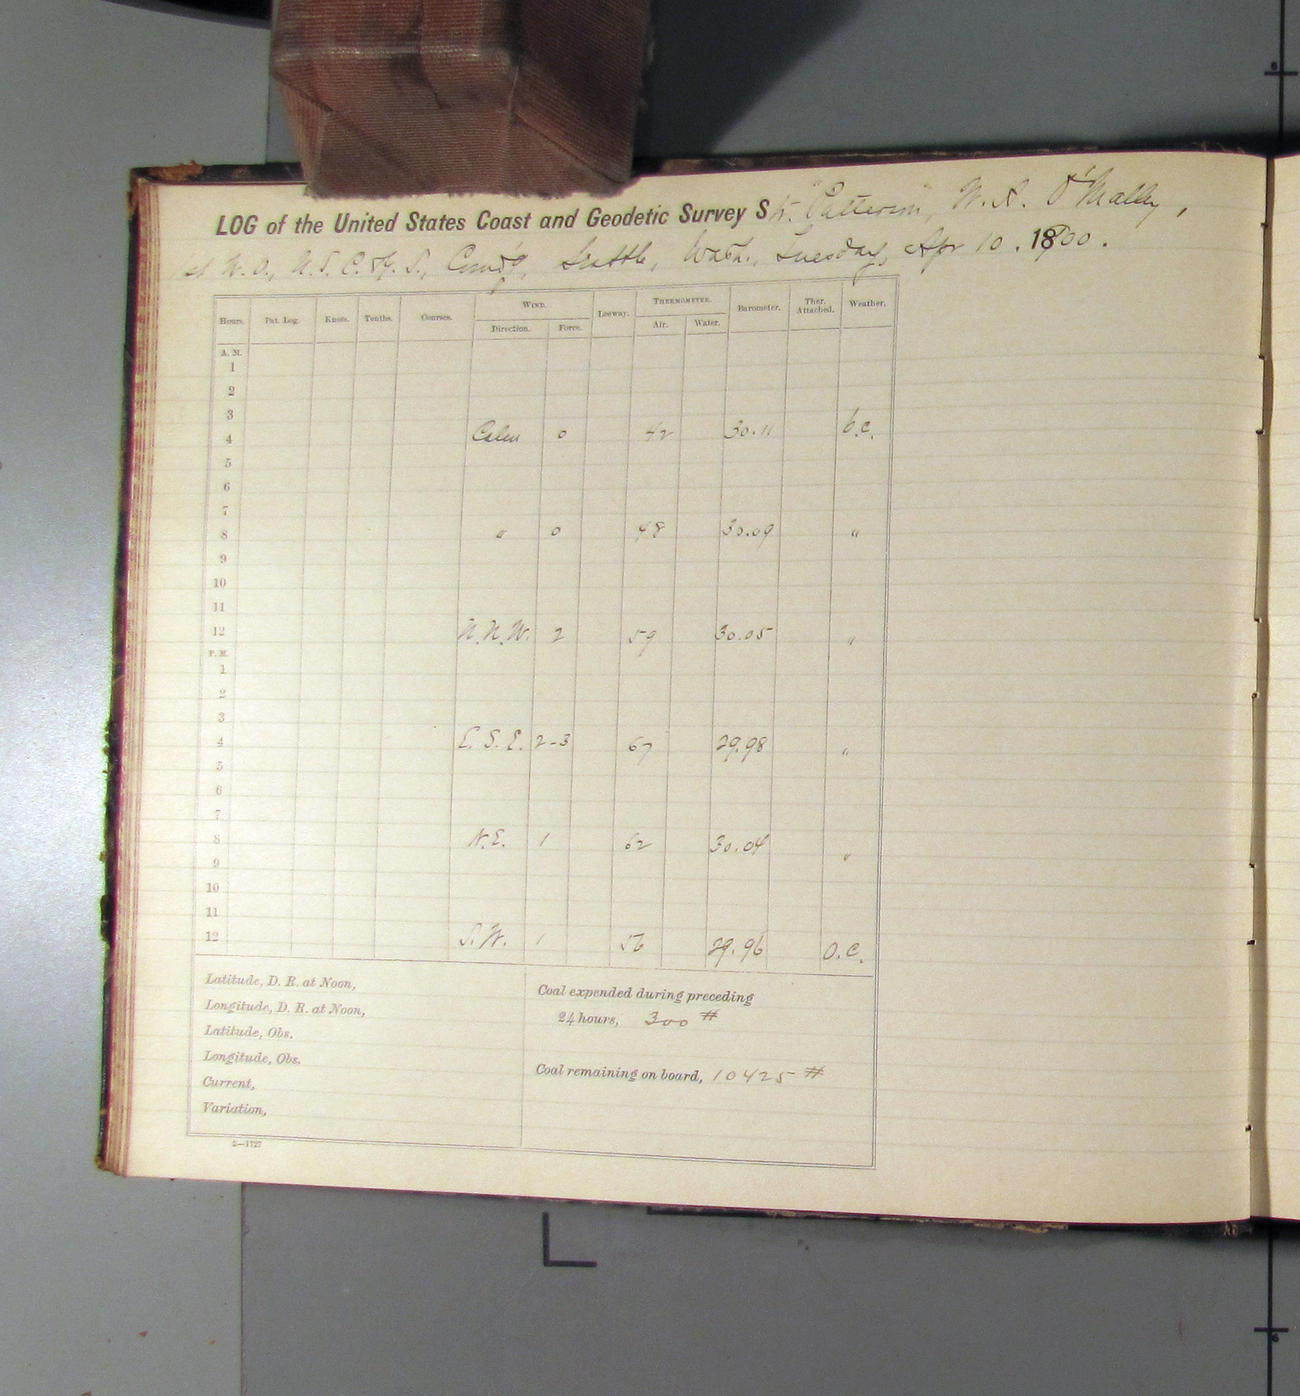 LOG of the United States Coast and Geodetic Survey Str. "Patterson", W. A. O'Malley,
1st W. O., U. S. C. & G. S., Comd'g, Seattle, Wash., Tuesday, Apr 10. 1900.
Hours. Pat. Log. Knots. Tenths. Courses. WIND. Leeway. THERMOMETER. Barometer. Ther. Attached. Weather.
Direction. Force. Air. Water.
A. M.
1
2
3
4 Calm 0 42 30.11 b.c.
5
6
7
8 " 0 48 30.09 "
9
10
11
12 N.N.W. 2 59 30.05 "
P. M.
1
2
3
4 E.S.E. 2-3 67 29.98 "
5
6
7
8 N.E. 1 62 30.04 "
9
10
11
12 S.W. 1 56 29.96 O.C.
Latitude, D. R. at Noon,
Longitude, D. R. at Noon,
Latitude, Obs.
Longitude, Obs.
Current,
Variation,
Coal expended during preceding
24 hours, 300 #
Coal remaining on board, 10425 #
2—1727